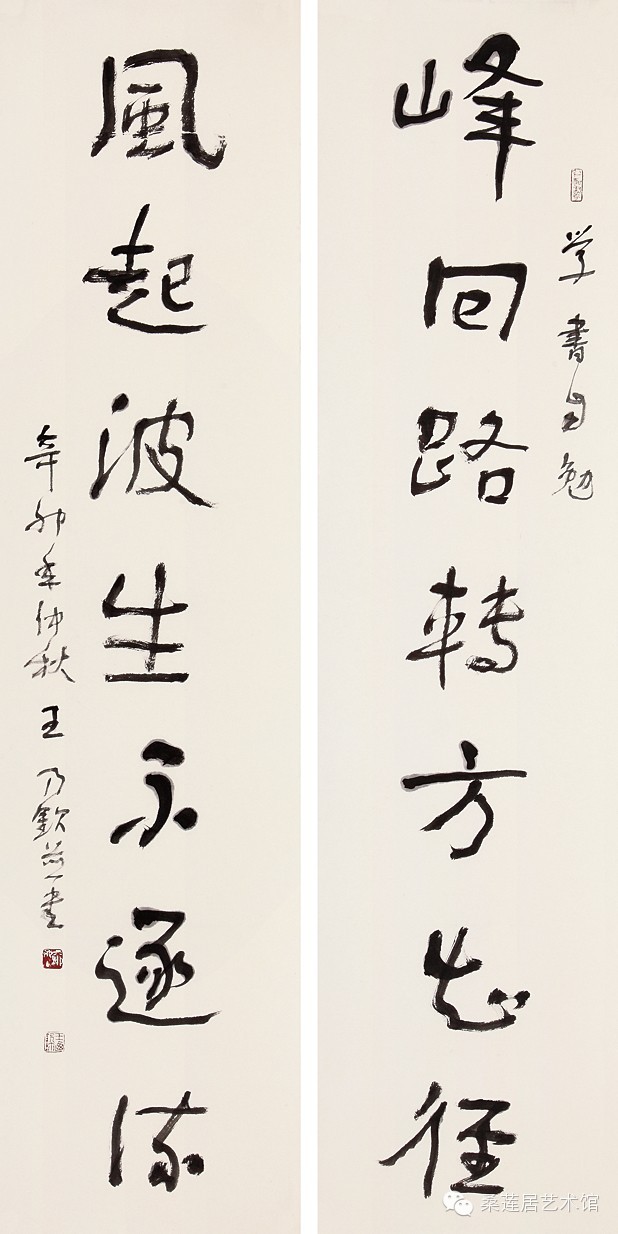 学書自勉
峰回路轉方知徑
風起波生不逐流
辛卯年仲秋王乃欽並書
桑莲居艺术馆